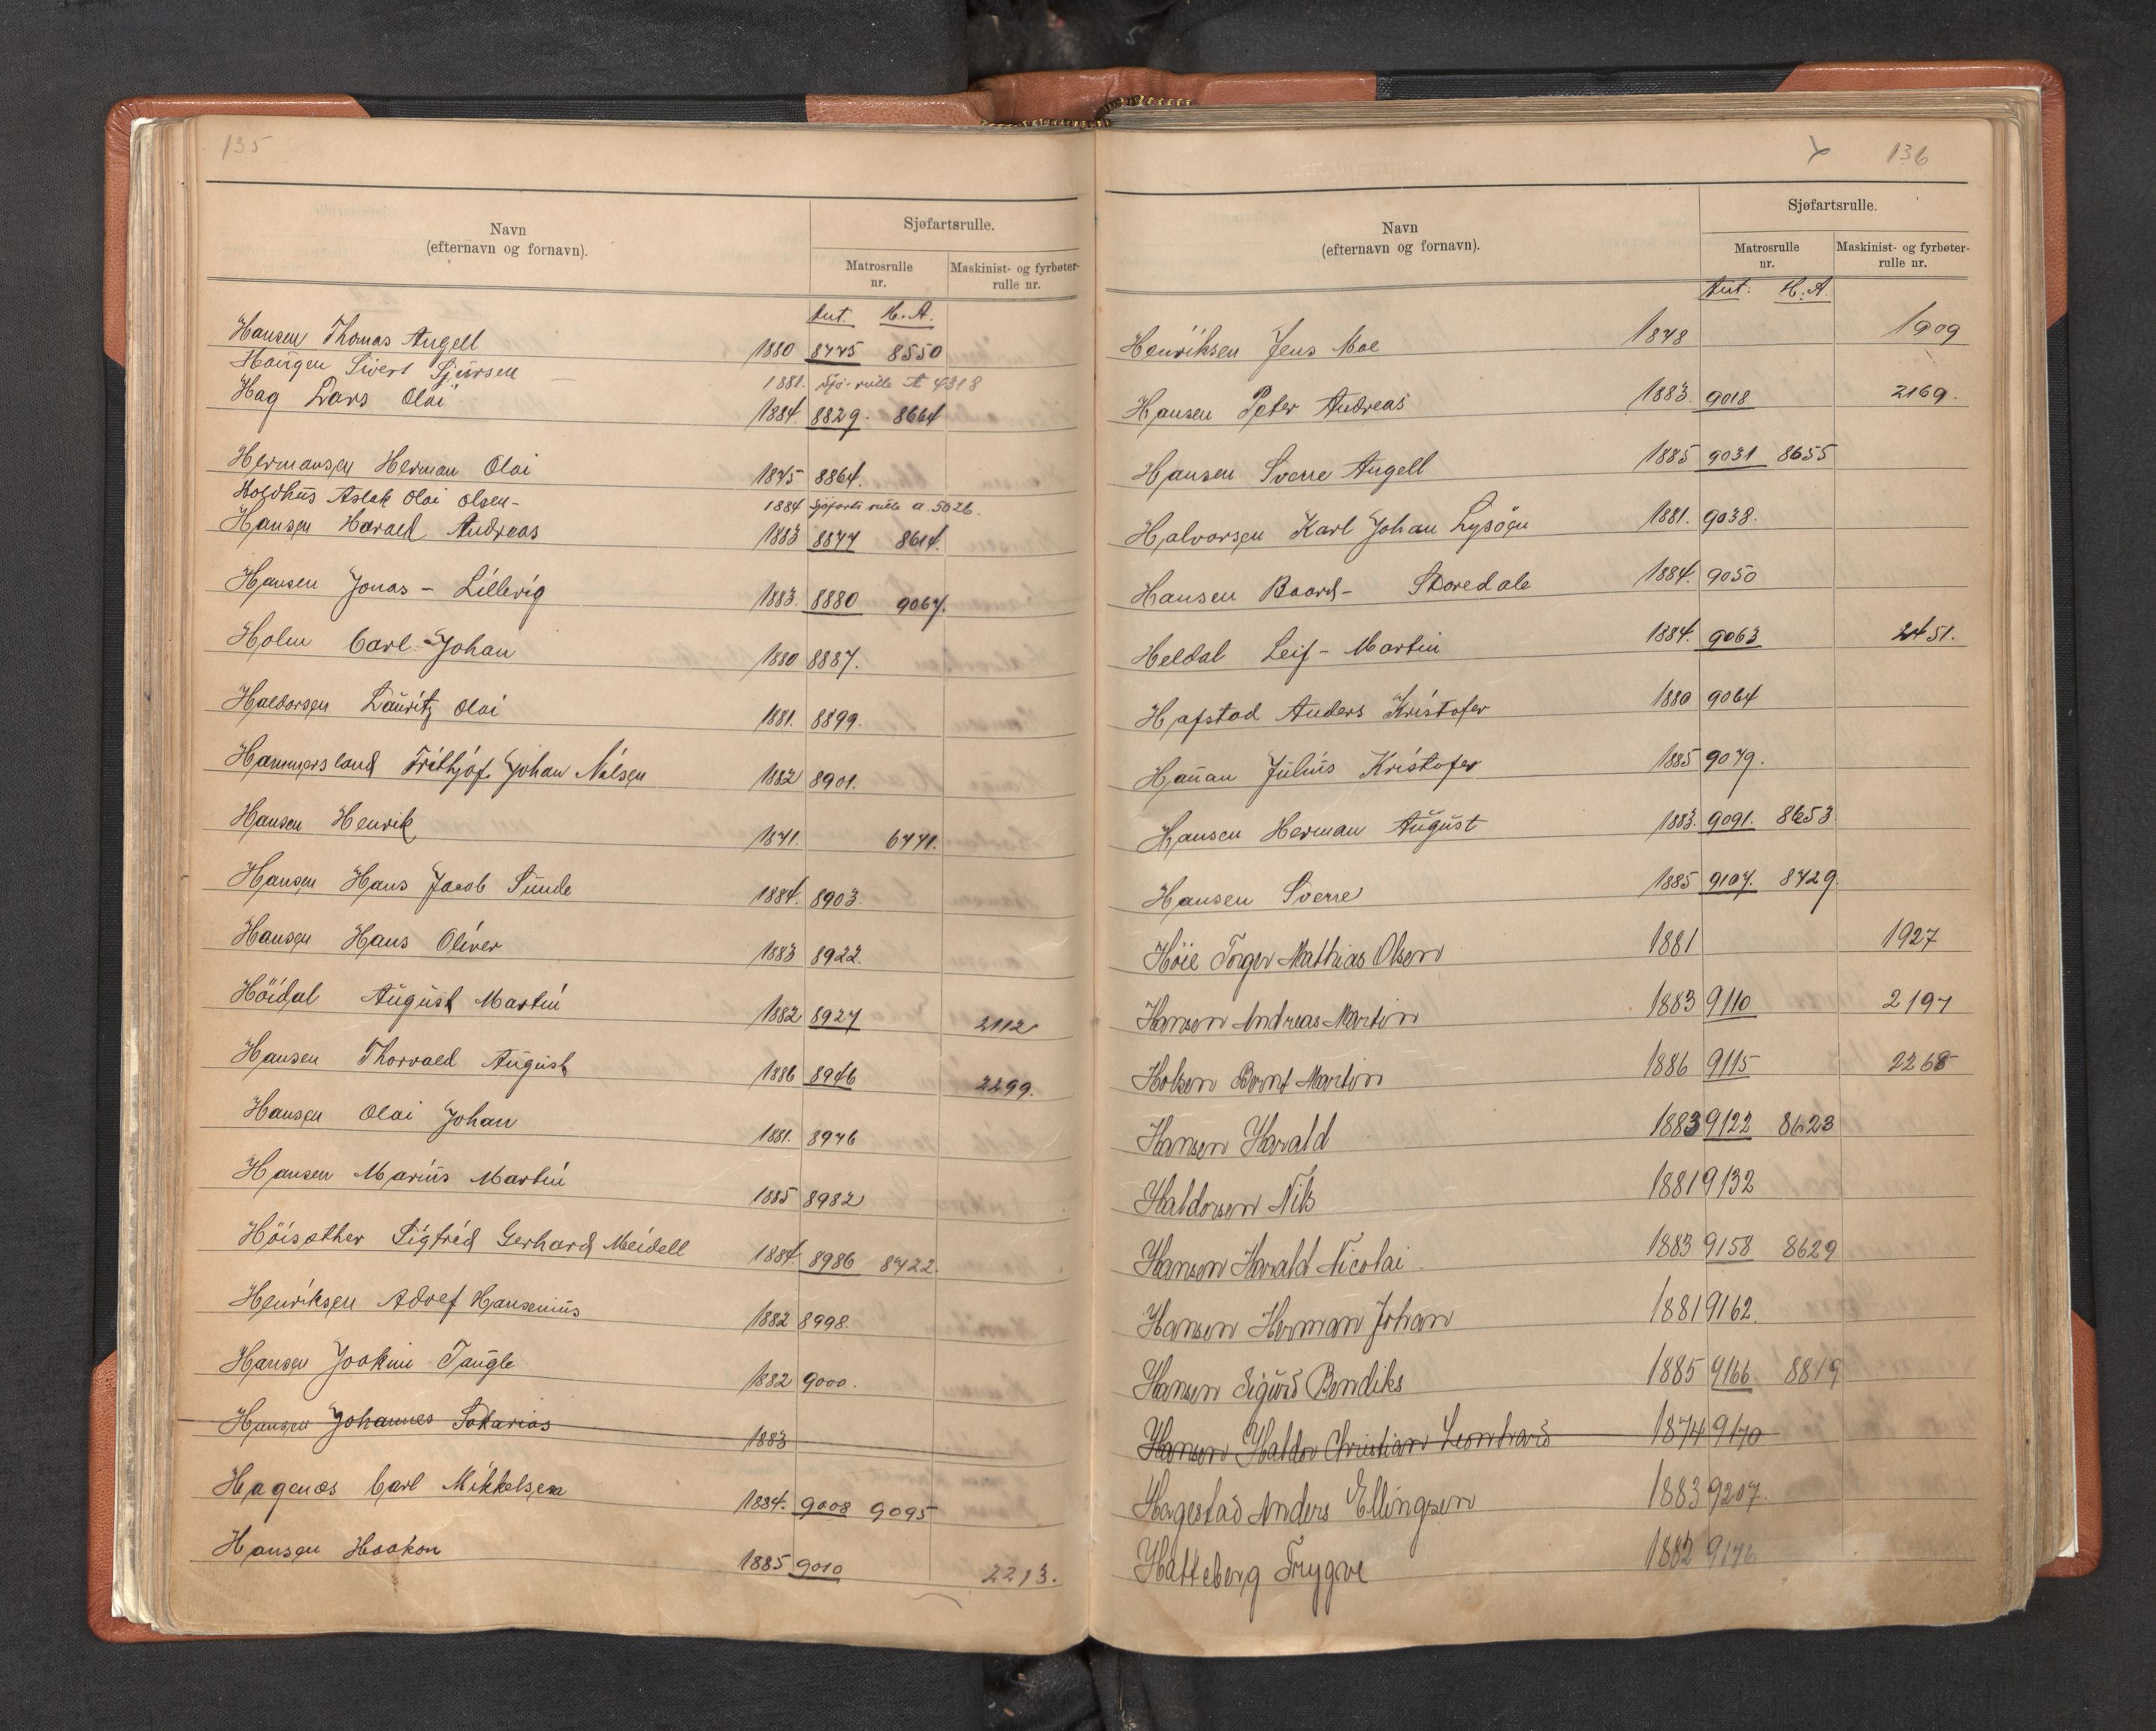 135
Navn
(efternavn og fornavn).
Sjøfartsrulle.
Matrosrulle
nr.
Maskinist- og fyrbøter-
rulle nr.
Aut. H.A.
Hansen Thomas Angell 1880 8775 8550
Haugen Sivert Sjursen 1881. Sjø-rulle A 4318
Hag Lars Olai 1884. 8829. 8664
Hermansen Herman Olai 1875 8864.
Holdhus Aslak Olai Olsen- 1884 Sjøfarts rulle a. 5026.
Hansen Harald Andreas 1883 8877 8614.
Hansen Jonas - Lillevig 1883. 8880 9067.
Holm Carl-Johan 1880 8887.
Haldorsen Lauritz Olai 1881. 8899.
Hammersland Frithjof Johan Nilsen 1882 8901.
Hansen Henrik 1871. 6771.
Hansen Hans Jacob Sunde 1884. 8903.
Hansen Hans Oliver 1883 8922.
Höidal August Martin 1882 8927 2112
Hansen Thorvald August 1886 8946 2299.
Hansen Olai Johan 1881. 8976
Hansen Marius Martin 1885 8982
Höisæther Sigfrid Gerhard Meidell 1884. 8986 8722.
Henriksen Adolf Hansenius 1882 8998.
Hansen Joakim Tangle 1882 9000.
Hansen Johannes Sakarias 1883
Hagenæs Carl Mikkelsen 1884. 9008 9095
Hansen Haakon 1885 9010 2213.
136
Navn
(efternavn og fornavn).
Sjøfartsrulle.
Matrosrulle
nr.
Maskinist- og fyrbøter-
rulle nr.
Aut. H.A.
Henriksen Jens Moe 1878 1909
Hansen Peter Andreas 1883. 9018 2169.
Hansen Sverre Angell 1885 9031 8655
Halvorsen Karl Johan Lysöen 1881. 9038.
Hansen Baard- Storedale 1884. 9050
Heldal Leif - Martin 1884. 9063 2451.
Hafstad Anders Kristofer 1880 9064
Hauan Julius Kristofer 1885 9079.
Hansen Herman August 1883. 9091. 8653
Hansen Sverre 1885 9107. 8729.
Höie Torger Mathias Olsen 1881 1927
Hansen Andreas Martin 1883 9110 2197
Holsen Bernt Martin 1886 9115 2268
Hansen Harald 1883 9122 8623
Haldorsen Nils 1881 9132
Hansen Harald Nicolai 1883 9158 8629
Hansen Herman Johan 1881 9162.
Hansen Sigurd Bendiks 1885 9166 8819
Hansen Haldor Christian Leonhard 1874 9170
Hagestad Anders Ellingsen 1883 9207.
Hatteberg Trygve 1882 9176